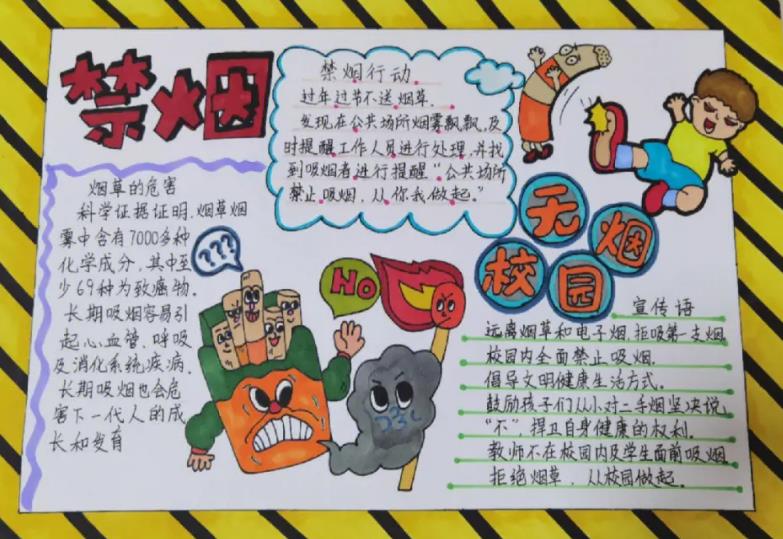 禁烟
禁烟行动
过年过节不送烟草.
发现在公共场所烟雾飘飘,及
时提醒工作人员进行处理,并找
到吸烟者进行提醒“公共场所
禁止吸烟,从你我做起。”
烟草的危害
科学证据证明.烟草烟
雾中含有7000多种
化学成分,其中至
少69种为致癌物.
长期吸烟容易引
起心血管、呼吸
及消化系统疾病.
长期吸烟也会危
害下一代人的成
长和发育
???
NO
无烟
校园
宣传语
远离烟草和电子烟,拒吸第一支烟.
校园内全面禁止吸烟.
倡导文明健康生活方式.
鼓励孩子们从小对二手烟坚决说
“不”,捍卫自身健康的权利.
教师不在校园内及学生面前吸烟.
拒绝烟草,从校园做起.